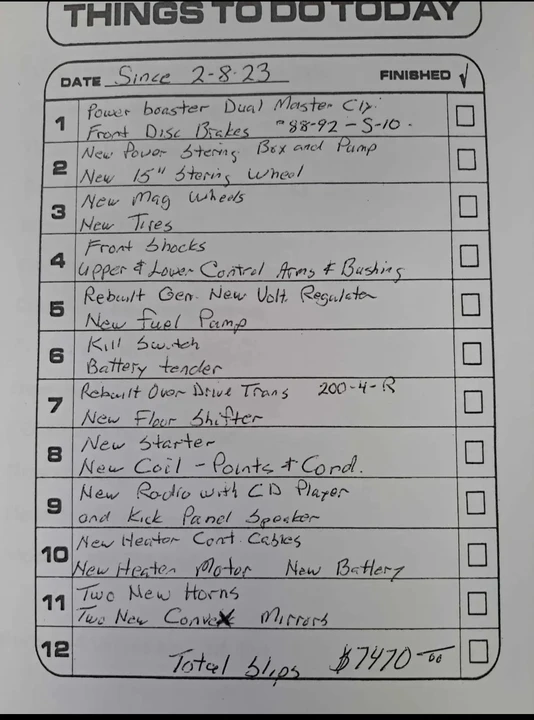 THINGS TO DO TODAY
DATE Since 2-8-23 FINISHED √
1 Power boaster Dual Master Cly.
Front Disc Brakes "88-92-S-10.
2 New Power Stering Box and Pump
New 15" Stering Wheel
3 New Mag Wheels
New Tires
4 Front Shocks
Upper & Lower Control Arms & Bushing
5 Rebuilt Gen. New Volt. Regulator
New Fuel Pump
6 Kill Switch
Battery tender
7 Rebuilt Over Drive Trans 200-4-R
New Floor Shifter
8 New Starter
New Coil - Points & Cond.
9 New Radio with CD Player
and Kick Panel Speaker
10 New Heator Cont. Cables
New Heater Motor New Battery
11 Two New Horns
Two New Convex Mirrors
12 Total Slips $7470 00